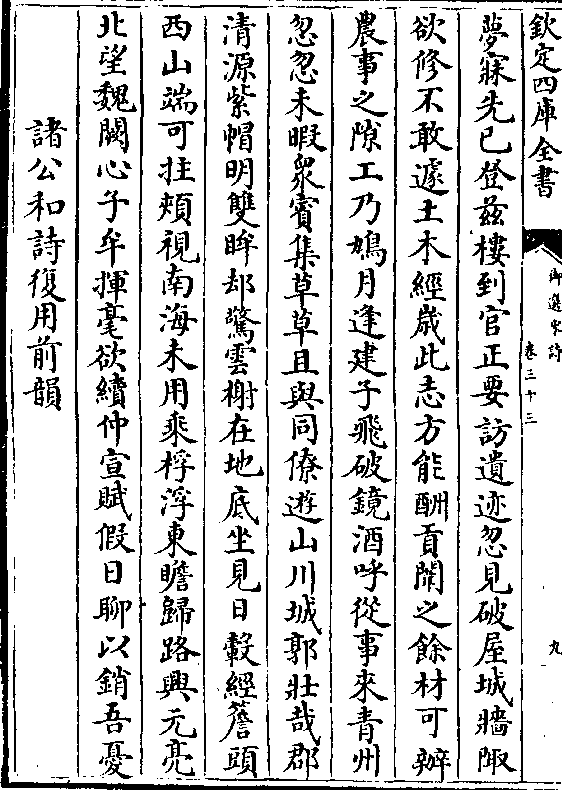 欽定四庫全書
御選宋詩
卷三十三
九
夢寐先已登兹樓到官正要訪遺迹忽見破屋城牆陬
欲修不敢遽土木經歳此志方能酬貢闈之餘材可辦
農事之隙工乃鳩月逢建子飛破鏡酒呼從事來青州
怱怱未暇衆賓集草草且與同僚遊山川城郭壯哉郡
清源紫帽明雙眸却驚雲榭在地底坐見日轂經簷頭
西山端可拄頰視南海未用乘桴浮東瞻歸路興元亮
北望魏闕心子牟揮毫欲續仲宣賦假日聊以銷吾憂
諸公和詩復用前韻